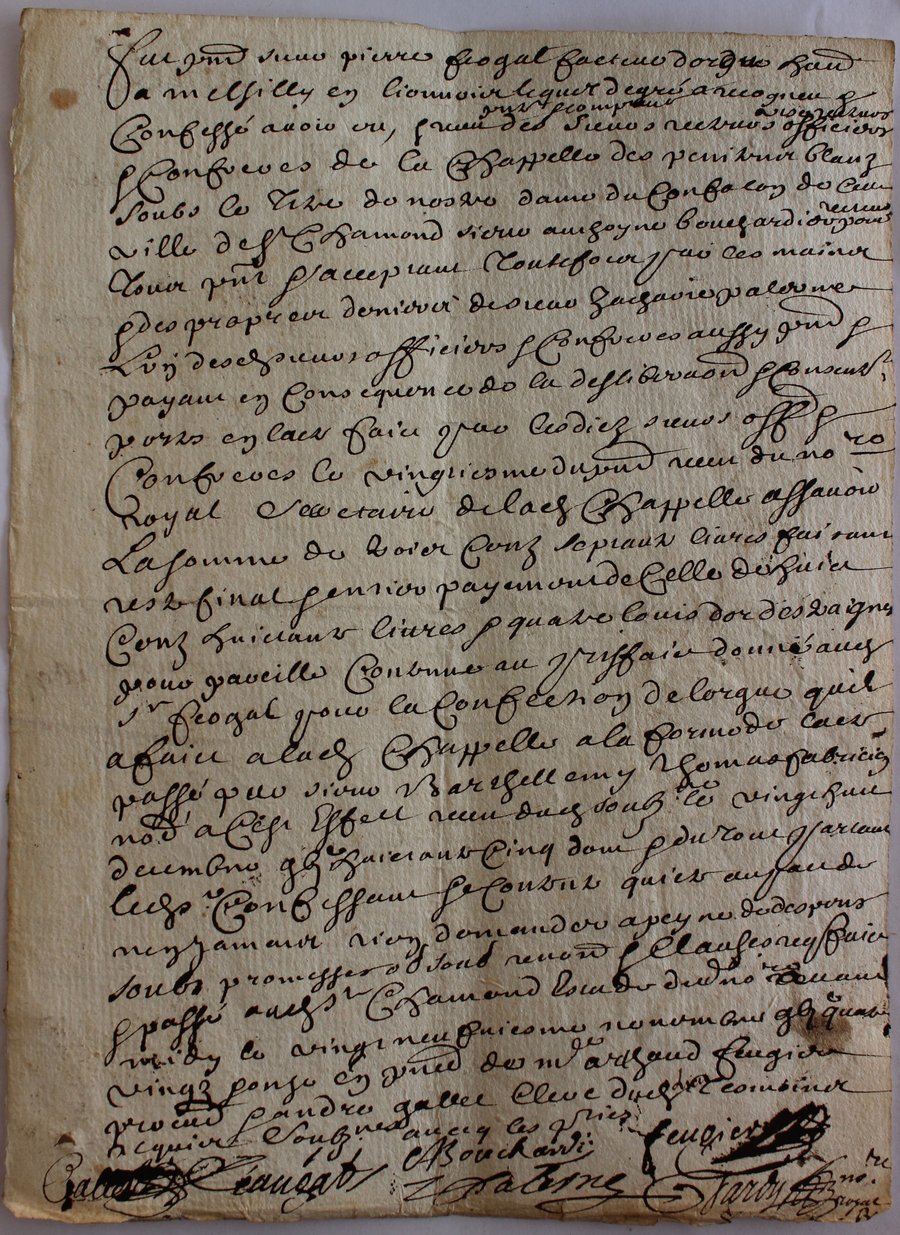 Fut pnt sieur pierre feogat facteur d'orgue habt
a Messilly en lionnois lequel de gré a recogneu &
Confessé avoir eu, & receu des sieurs recteurs officiers
& Confreres de la Chappelle des penitens blancz
soubs le titre de nostre dame du Confalon de cette
ville de St Chamond sieur anthoyne bouchardi
Tour pnt & acceptant Toutefois par les mains
& des propres deniers de sieur Zacharie palerne
L'un desdz sieurs officiers & Confreres aussy pnt &
payant en Consequence de la desliberaon &
portés en l'acte faict par lesdictz sieurs offrs &
Confreres le vingtiesme du pnt receu du nore
Royal Secretaire de lad Chappelle assavoir
La somme de trois Centz septante livres faisant
reste final & entier payement de Celle de huict
Centz huictante livres & quatre louis d'or d'estraignes
pour pareille Contenue au prisfaict donné aud
sr feogat pour la Confection de l'orgue qu'il
a faict a lad Chappelle a la forme de l'acte
passé par sieur Barthellemy Thomas fabricien
a Cest Effect receu dud soubz né le vingt huict
decembre huictante Cinq dont & du tout partant
ledt sr Confessant se Contente quicte
n'en jamais rien demander a peyne de despens
soubs promesses obd soub renon & Clauses reqs faict
& passé aud St Chamond Estude dud nore avant
midy le vingt neufviesme novembre quatre
vingtz &onze en pnce de me Arthaud feugier
& andré gallet Clerc
requier Soubznés avecq les pties
Gallet feaugat A Bouchardi feugier
Z palerne Tardy nore royal